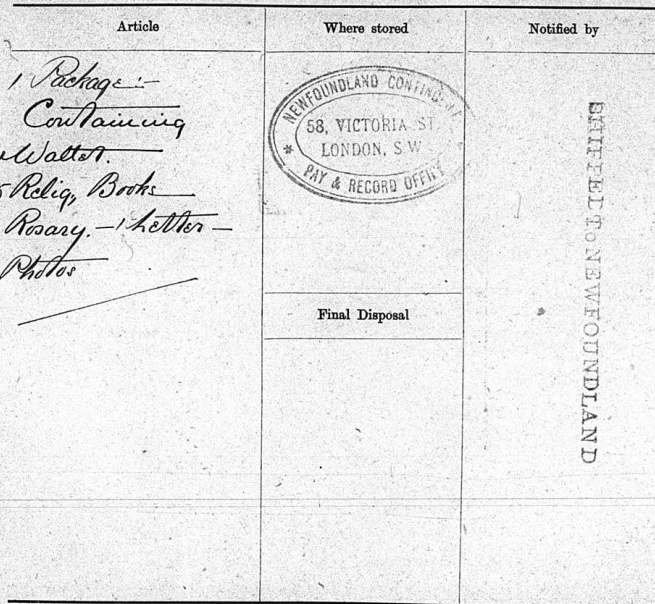 Article
Where stored
Notified by
1 Package :-
Containing
Wallet.
5 Relig, Books
Rosary. - 1 Letter -
Photos
NEWFOUNDLAND CONTINGENT
58, VICTORIA ST.
LONDON, S.W.
* PAY & RECORD OFFICE
Final Disposal
SHIPPED TO NEWFOUNDLAND